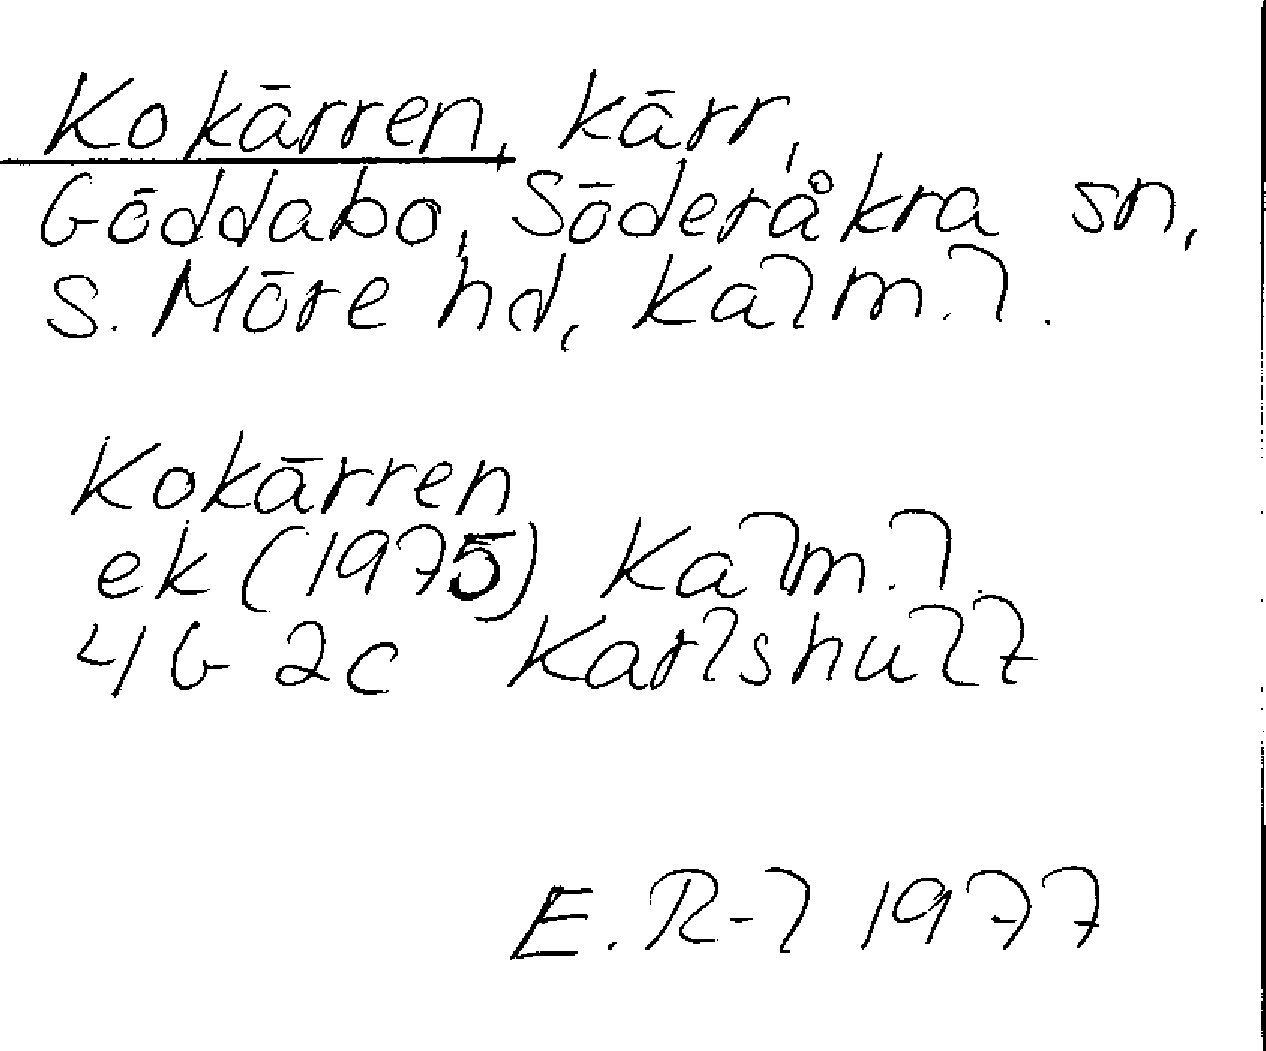 Kokärren, kärr,
Göddabo, Söderåkra sn,
S. Möre hd, Kalm. l.
Kokärren
ek (1975) Kalm. l.
4G 2c Karlshult
E. R-l 1977